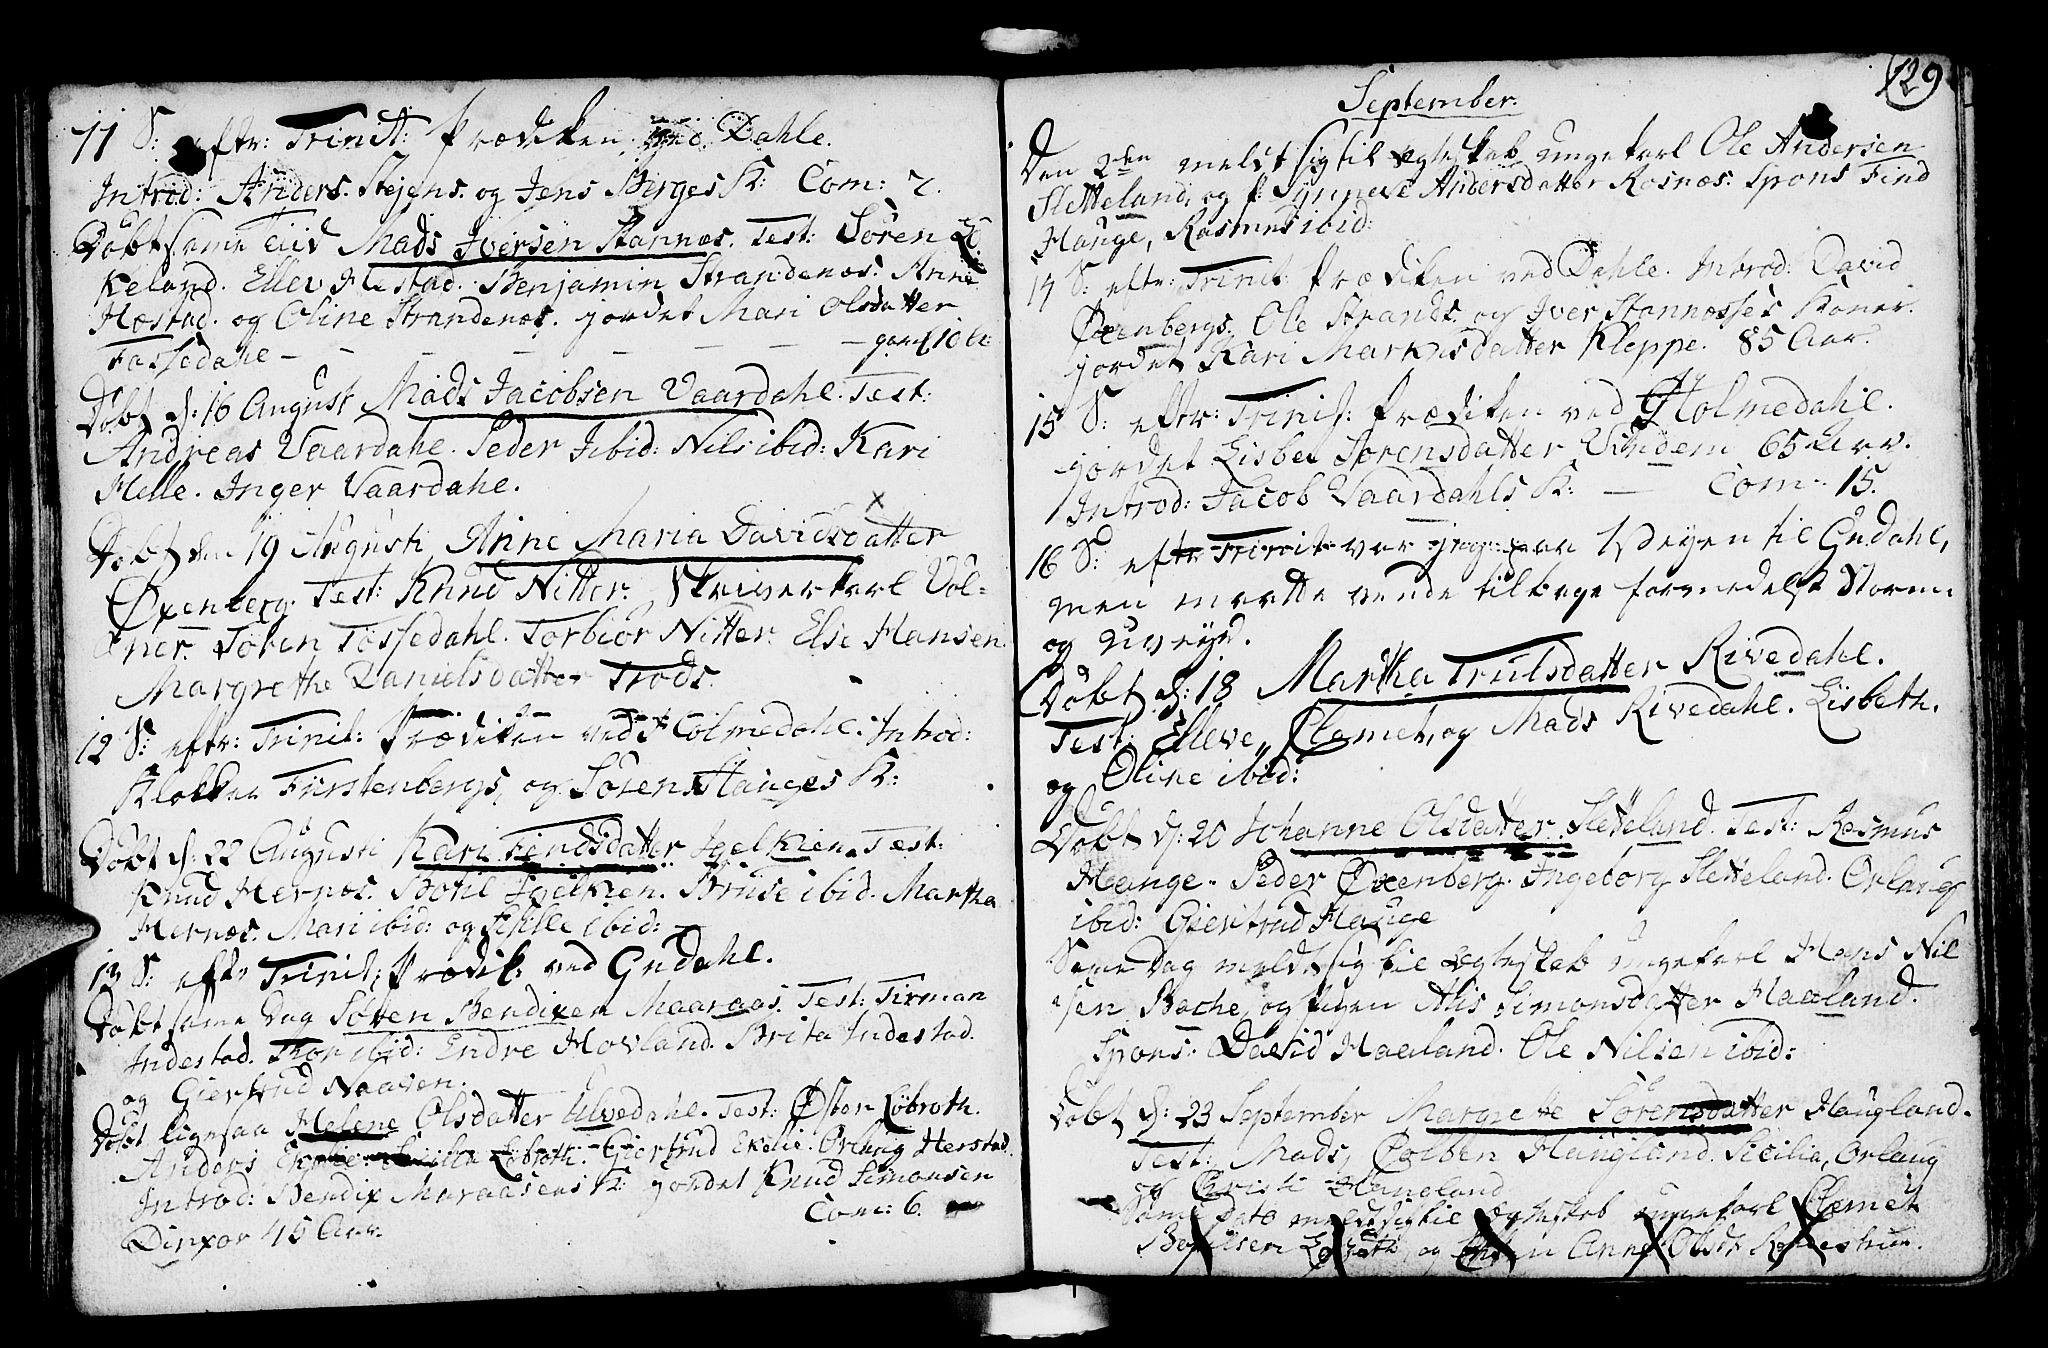 11 S: eftr: Trinit: Prædiken ved Dahle.
Introd: Anders Stejens. og Jens Berges K: Com: 7.
Døbt same Tiid Mads Iversen Stannæs. Test: Søren
keland. Ellev Hestad. Benjamin Strandenæs. Anne
Hæstad. og Oline Strandenæs. jordet Mari Olsdatter
Fossedahl - - - - - - - -
Døbt d: 16 August Mads Jacobsen Vaardahl. Test:
Andreas Vaardahl. Peder Ibid: Nils ibid: Kari
Helle. Inger Vaardahl.
Døbt den 19 Augusti Anne Maria Davidsdatter
Øxenberg. Test: Knud Nitter. Skriverkarl Vol=
Søren Tossedahl. Torbiør Nitter. Else Hansen
Margrethe Danielsdatter Trods.
12 S: eftr: Trinit: Prædiken ved Holmedahl. Introd:
Klokker Fürstenbergs, og Søren Hauges K:
Døbt d: 22 Augusti Kari Findsdatter Test:
Knud Hernæs. Botil Bruse ibid. Martha
Hernæs. Mari ibid: og Sille ibid:
13 S: eftr Trinit: Prædik: ved Guddahl.
Døbt same Dag Søren Bendixen Maaraas. Test: Tirman
Indestad. Thor ibid: Endre Hovland. Brita Indestad.
og Giertrud Naaven.
Døbt ligesaa Helene Olsdatter Ulvedahl. Test: Østen Løbroth.
Anders Løbroth. Giertrud Ekelie. Orlaug Herstad.
Introd: Bendix Maraasens K: jordet Knud Simonsen
Dinxor 45 Aar. Com: 6.
129
September.
Den 2den meldt sig til Egteskab ungekarl Ole Andersen
Sletteland, og p: Synneve Andersdatter Rosnæs. Spons Find
Hauge, Rasmus ibid:
14 S: eftr: Trinit: Prædiken ved Dahle. Introd: David
Øxenbergs. Ole Strands. og Iver Stannæsses Koner.
jordet Kari Markusdatter Kleppe. 85 Aar.
15 S: eftr: Trinit: Prædiken ved Holmedahl.
jordet Lisbet Sørensdatter Vindem 65 Aar.
Introd: Jacob Vaardahls K: — Com: 15.
16 S: eftr Trinit: var jeg paa Vejen til Gudahl,
men maatte vende tilbage formedelst Storm
og Uvejr.
Døbt d: 18 Martha Trulsdatter Rivedahl.
Test: Elleve, Clemet, og Mads Rivedahl. Lisbeth.
og Oline ibid:
Døbt d: 20 Johanne Olsdatter Sletteland. Test: Rasmus
Hauge. Peder Øxenberg. Ingeborg Sletteland. Orlaug
ibid: Giertrud Hauge
Same Dag meldt sig til Egteskab ungekarl Hans Nil
sen Bache, og pigen Alis Simonsdatter Haaland.
Spons: David Haaland. Ole Nilsen ibid:
Døbt d: 23 September Margrette Sørensdatter Haugland.
Test: Mads, Colben Haugland. Sicilia, Orlaug
og Christi Haugland
Same Dato meldt sig til Egteskab ungekarl Clemet
Løbroth, og Anne Olsd: